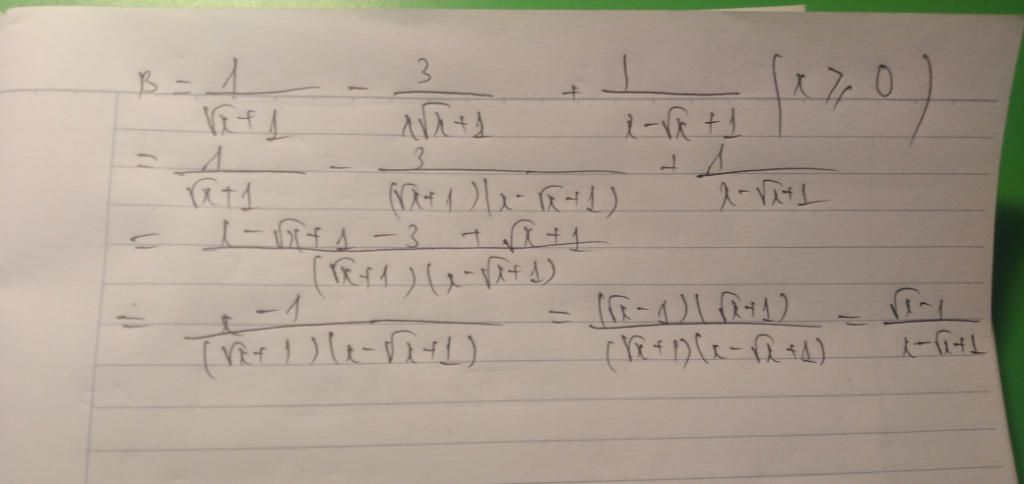 B = 1/(√x+1) - 3/(x√x+1) + 1/(x-√x+1) (x ≥ 0)
= 1/(√x+1) - 3/((√x+1)(x-√x+1)) + 1/(x-√x+1)
= (x-√x+1-3+√x+1)/((√x+1)(x-√x+1))
= (x-1)/((√x+1)(x-√x+1)) = ((√x-1)(√x+1))/((√x+1)(x-√x+1)) = (√x-1)/(x-√x+1)